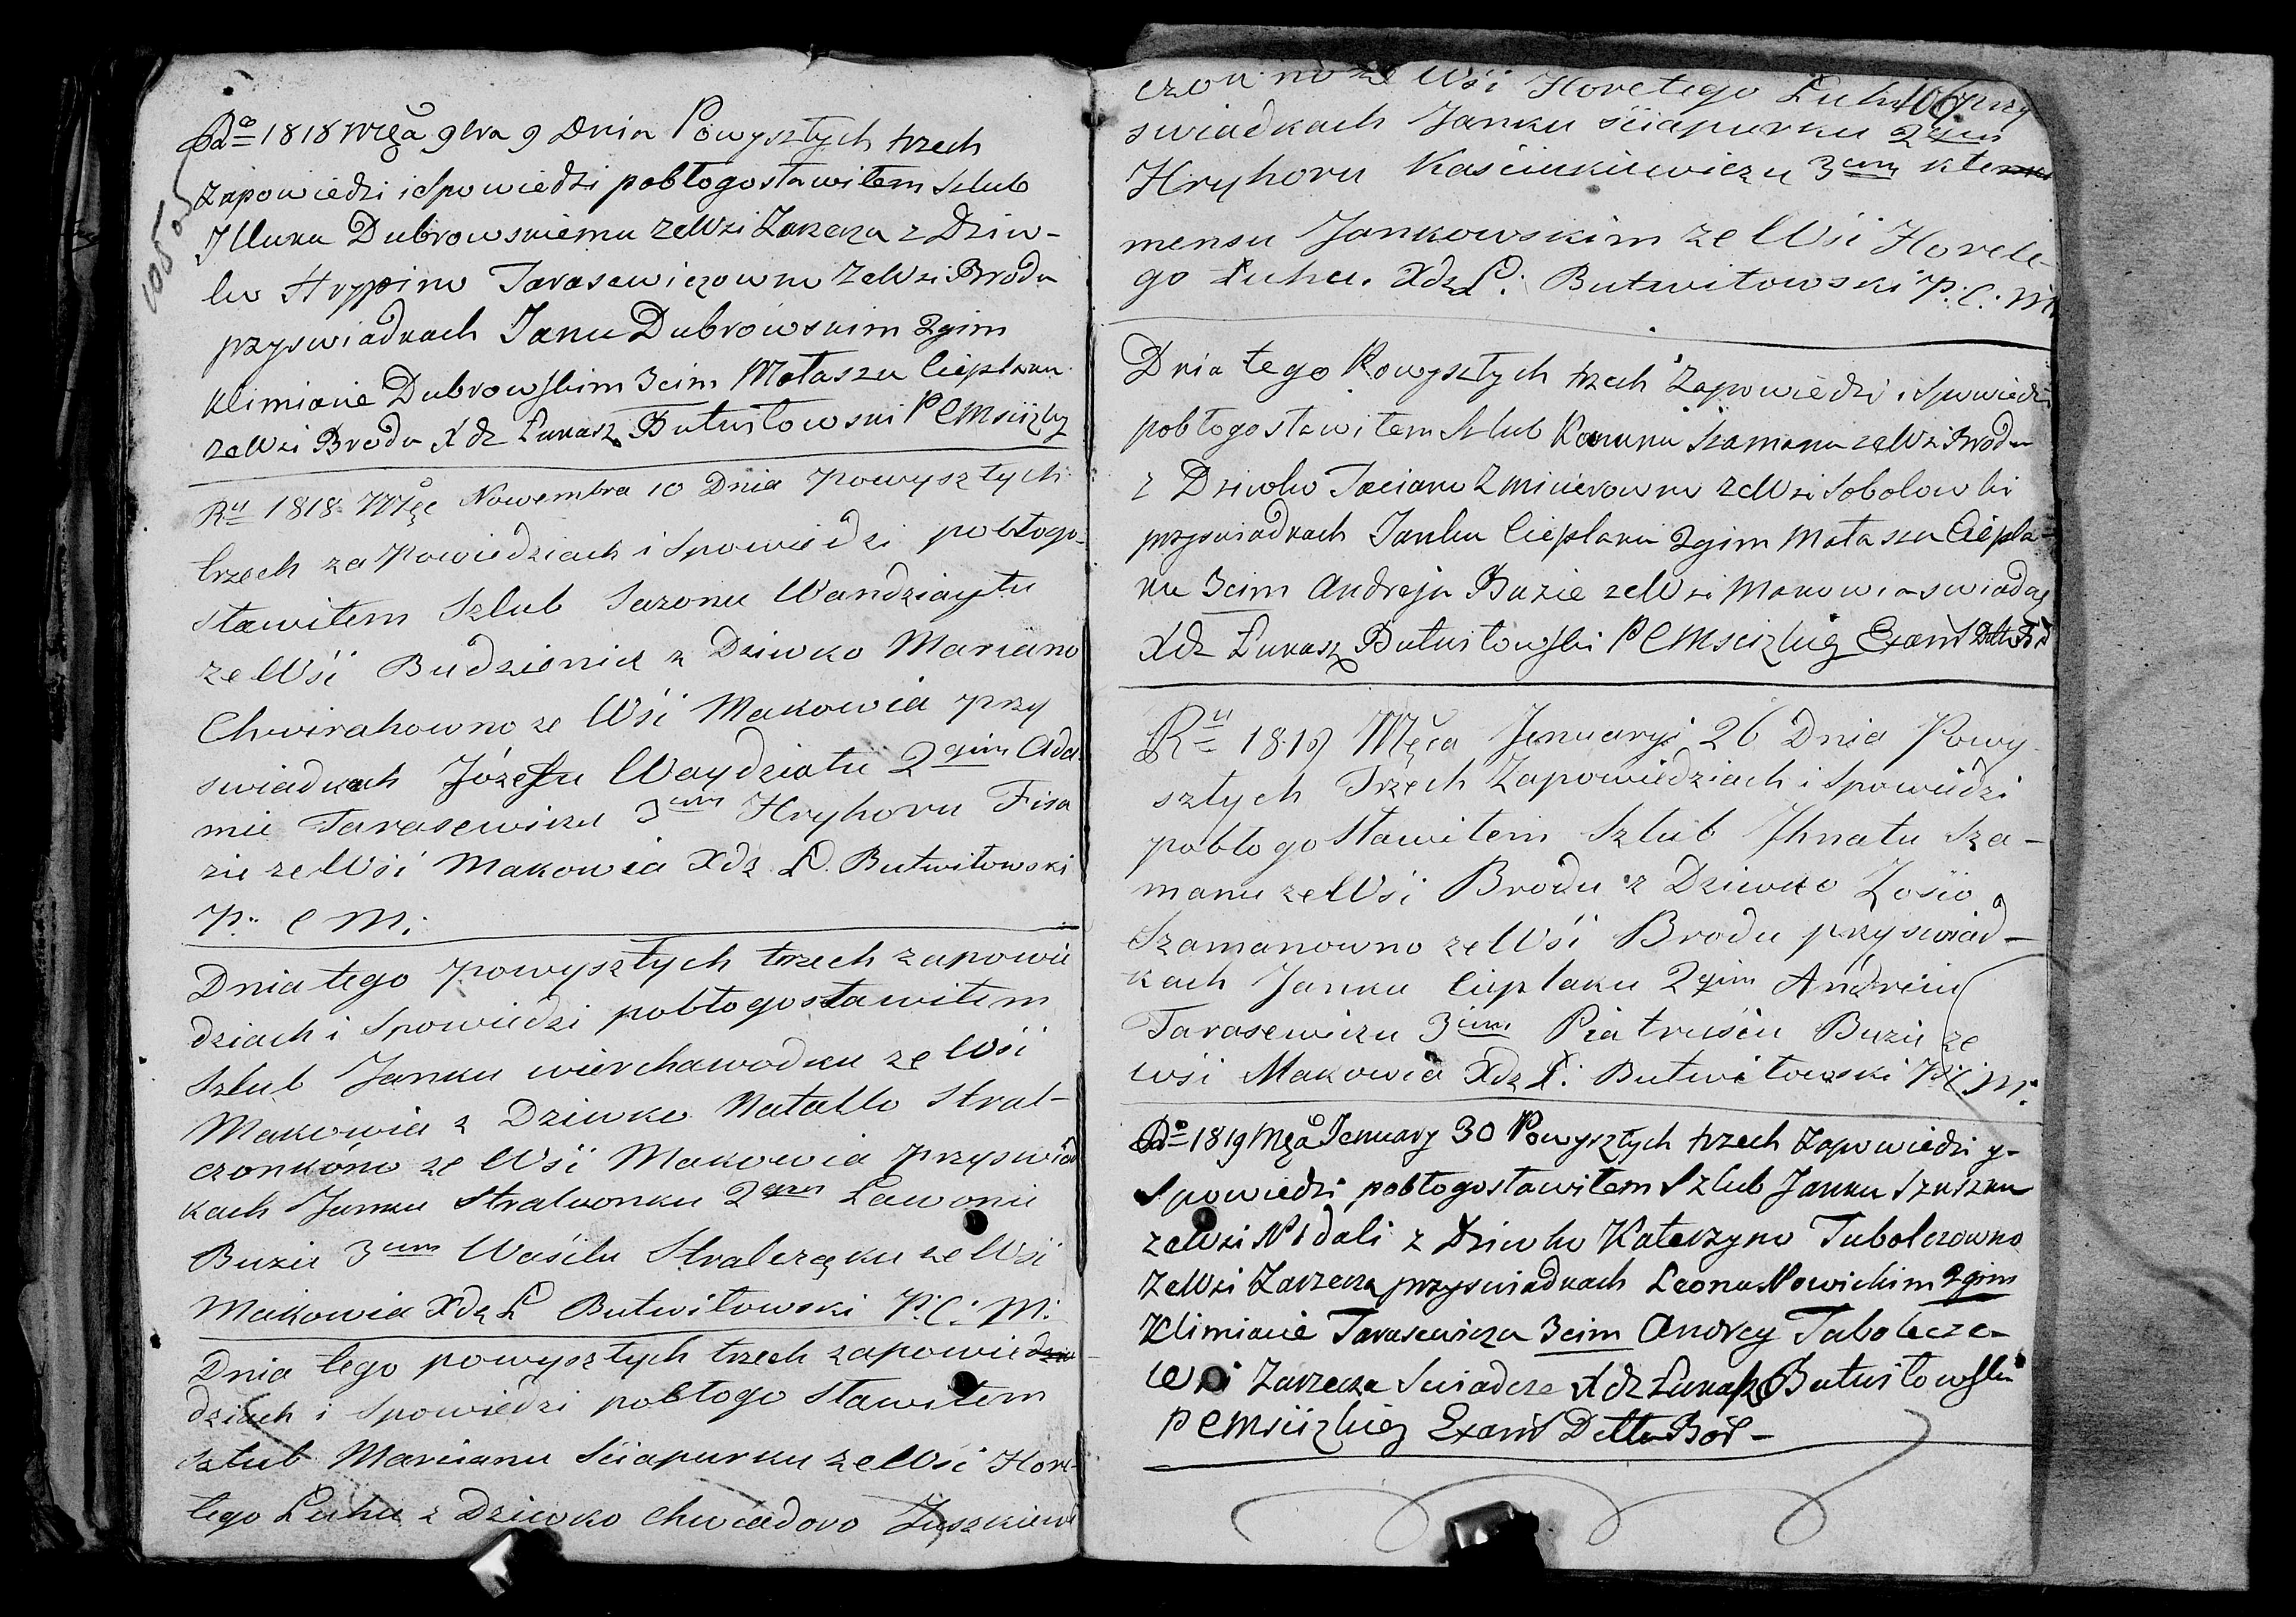 105
Rº 1818 Mcą 9bra 9 Dnia Powyszłych trzech
Zapowiedzi i Spowiedzi pobłogosławiłem Szlub
Illuku Dubrowskiemu ze Wsi Zarzecza z Dziw-
ko Hryppino Tarasewiczowno ze Wsi Brodu
przyswiadkach Janu Dubrowskim 2gim
Klimiacie Dubrowskim 3cim Mataszu Cieplaku
ze Wsi Brodu Xdz Łukasz Butwiłowski P C Mscizky
Ru 1818 Mcę Nowembra 10 Dnia powyszłych
trzech zapowiedziach i Spowiedzi pobłogo-
sławiłem Szlub Sazonu Wandziaytu
ze Wśi Budzienicz z Dziwko Mariano
Chwirakowno ze Wśi Makowia przy
swiadkach Józefu Waydziatu 2gim Ada
mie Tarasewiczu 3cim Hryhoru Fisa
zie ze Wśi Makowia Xdz Ł. Butwiłowski
P. C M.
Dnia tego powyszłych trzech zapowie
dziach i Spowiedzi pobłogosławiłem
Szlub Janku wierchawodku ze Wśi
Makowia z Dziwko Natallo Stral-
czonkowno ze Wśi Makowia przyswiad
kach Janku Stralczonku 2gim Lawonie
Buzie 3cim Waśilu Stralcząku ze Wśi
Makowia Xdz Ł Butwiłowski P. C. M.
Dnia tego powyszłych trzech zapowie
dziach i Spowiedzi pobłogo sławiłem
Szlub Marcianu Sciapurku ze Wśi Hore-
łego Łuhu z Dziwko Chwiadoro Juszkiewi
czowno ze Wśi Horełego Łuhu przy
106
swiadkach Janku Sciapurku 2gim
Hryhoru Kaściukiewiczu 3cim Kle
mensu Jankowskim ze Wśi Horełe
go Łuhu. Xdz Ł. Butwiłowski P. C. M
Dnia tego Powyszłych trzech Zapowiedzi i Spowiedzi
pobłogosławiłem Szlub Szamanu ze Wsi Brodu
z Dziwko Taciano Zmicierowno ze Wsi Sobolowki
przyswiadkach Janku Cieplaku 2gim Mataszu Ciepla-
ku 3cim Andreju Buzie ze Wsi Makowia swiadcz
Xdz Łukasz Butwiłowski P C Mscizkieg Exam
Ru 1819 Męca January 26 Dnia Powy-
szłych Trzech Zapowiedziach i Spowiedzi
pobłogo sławiłem Szlub Ihnatu Sza-
manu ze Wśi Brodu z Dziwko Zosio
Szamanowno ze Wśi Brodu przyswiad-
kach Janku Cieplaku 2gim Andreiu
Tarasewiczu 3cim Piatruśiu Buziu ze
wśi Makowia Xdz Ł. Butwiłowski P. C. M.
Rº 1819 Mcą January 30 Powyszłych trzech Zapowiedzi y-
Spowiedzi pobłogosławiłem Szlub Janku Szuszku
ze Wsi Nidali z Dziwko Katerzyno Tubolczowno
ze Wsi Zarzecza przyswiadkach Leonu Nowickim 2gim
Klimiacie Tarasewiczu 3cim Andrey Tabolcze-
Wsi Zarzecza Swiadcze Xdz Łukasz Butwiłowski
P C Mscizkieg Exam